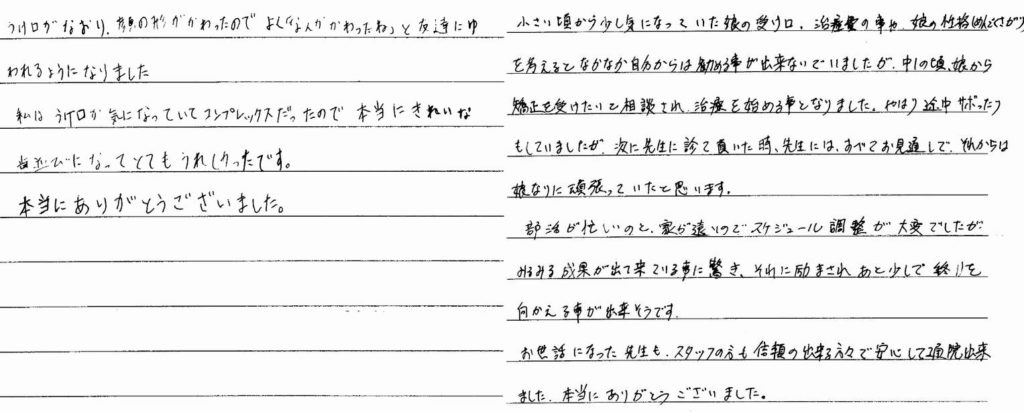 うけ口がなおり、顔の形がかわったので よく「なんかかわったね」と友達にゆ
われるようになりました
私は うけ口が気になっていてコンプレックスだったので 本当にきれいな
歯並びになってとてもうれしかったです。
本当にありがとうございました。
小さい頃から少し気になっていた娘の受け口。治療費の事や、娘の性格(めんどくさがり)
を考えるとなかなか自分からは勧める事が出来ないでいましたが、中1の頃、娘から
矯正を受けたいと相談され、治療を始める事となりました。やはり途中サボったり
もしていましたが、次に先生に診て頂いた時、先生には、すべてお見通しで、それからは
娘なりに頑張っていたと思います。
部活が忙しいのと、家が遠いのでスケジュール調整が大変でしたが
みるみる成果が出て来ている事に驚き、それに励まされ あと少しで終りを
向かえる事が出来そうです。
お世話になった先生も、スタッフの方も信頼の出来る方々で安心して通院出来
ました。本当にありがとうございました。